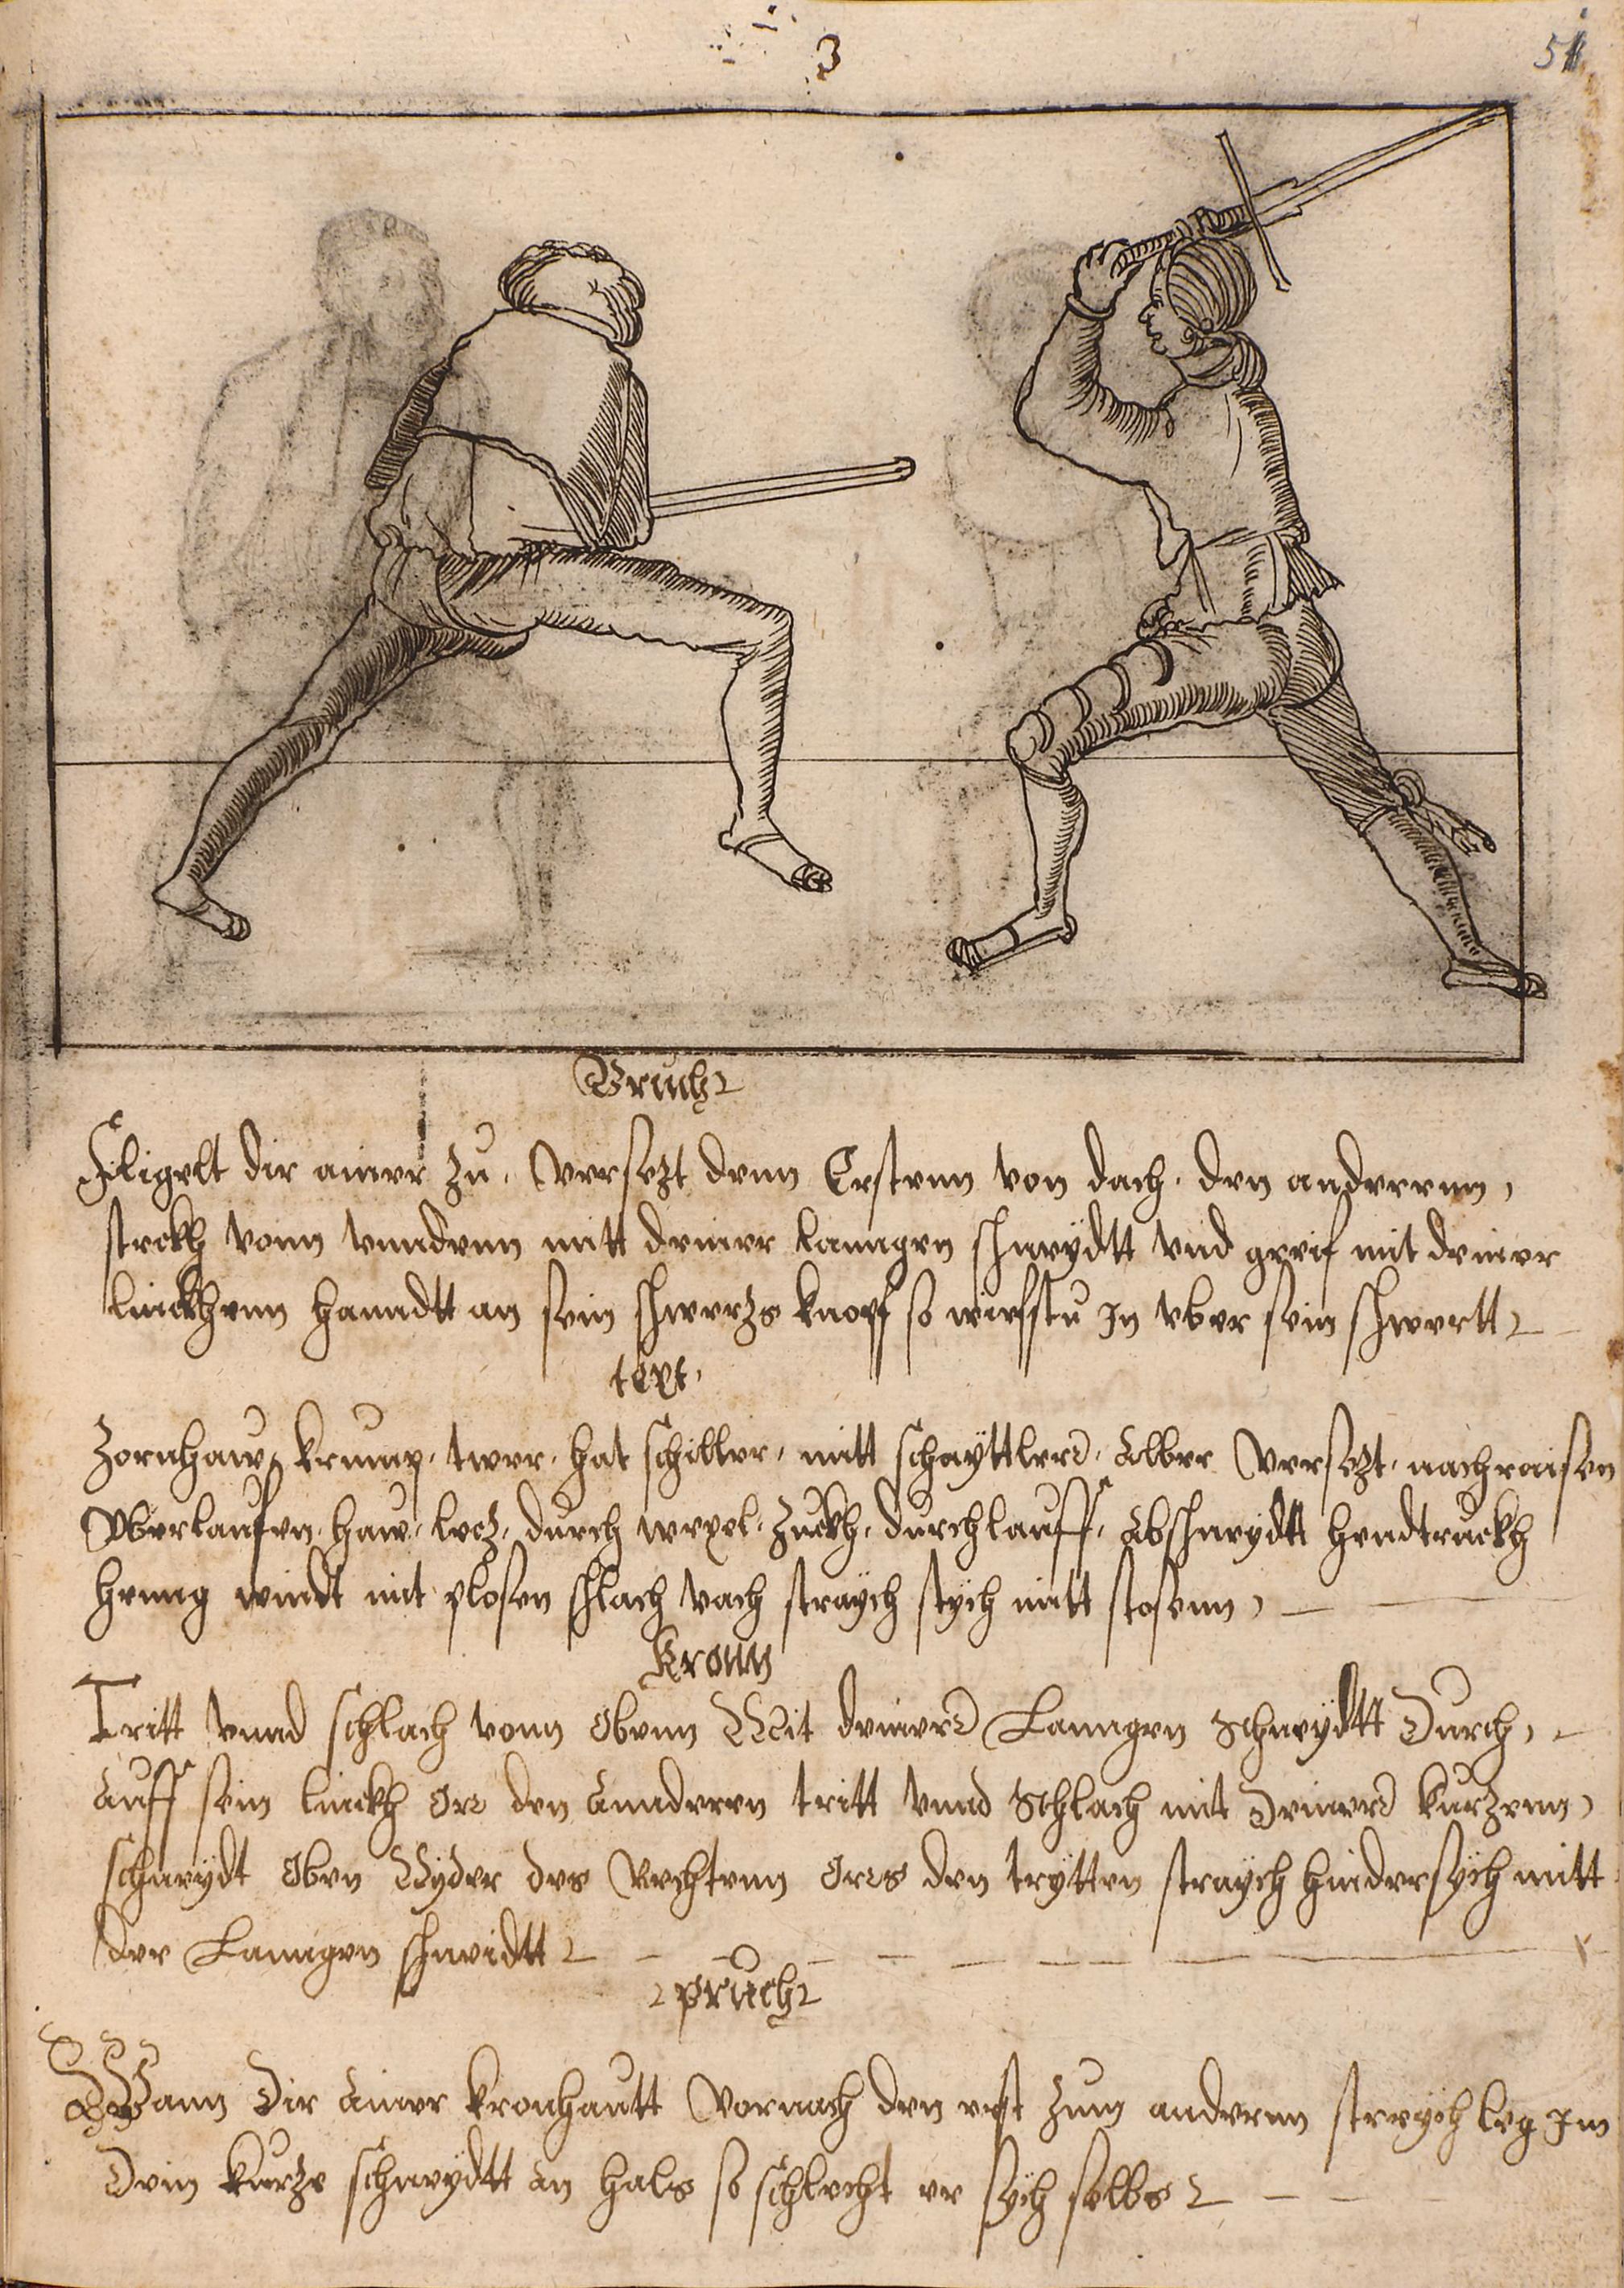 3
Bruch
Fligelt dir ainer zu, versezt denn Erstenn von dach, den anderenn,
strekh vonn vnndenn mitt deiner lanngen schneydtt vnd greif mit deiner
linckhenn hanndtt an sein schwerzs knopf so wirfstu in vber sein schwertt
text,
Zornhaw, krump, twer, hat schiller, mitt schayttler, Alber versezt, nachraisen
Vberlaufen, haw, lecz, durch wexel, Zuckh, durchlauff, Abschneydtt hendtruckh
heng windt mit plosen schlach vach straych stych mitt stosenn,
Kronn
Tritt vnnd schlach vonn Obenn Mit deiner Lanngen Schneydtt Durch,
Auff sein linckh Or den Annderen tritt vnnd Schlach mit Deiner kurzenn,
schneydt Oben Wyder des Rechtenn Ors den trytten straych hindersych mitt
der Lanngen schneidtt
pruch
Wann Dir Ainer kronhautt Vornach den erst zum anderenn streych leg Im
Dein kurze schneydtt An hals so schlecht er sych selbs